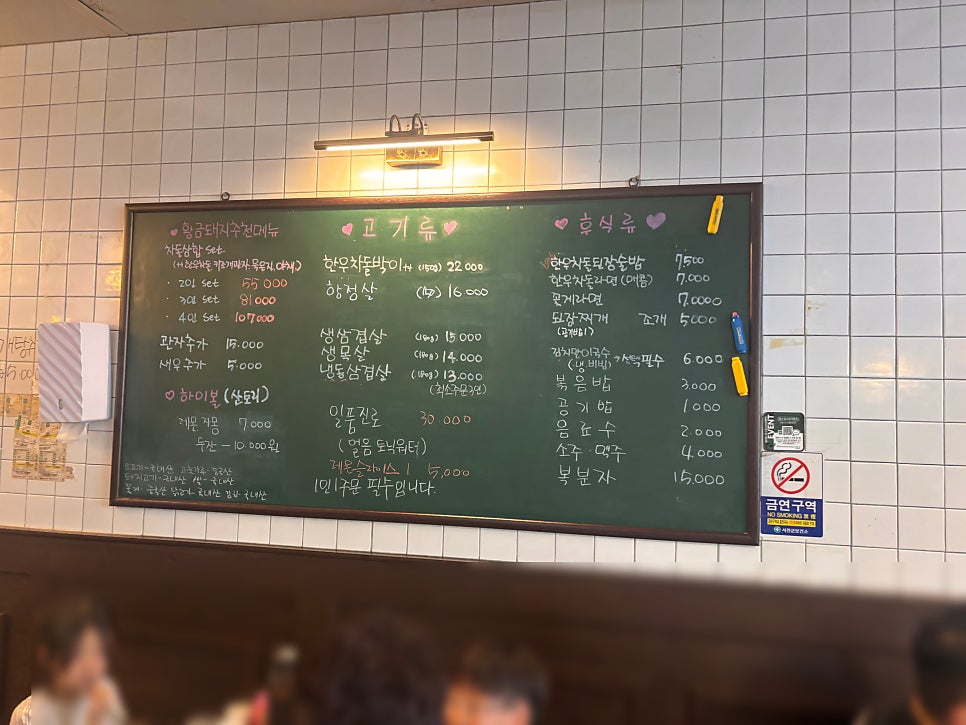 ♥ 황금돼지추천메뉴
차돌삼합 set
· 2인 set 55 000
· 3인 set 81 000
· 4인 set 107 000
관자추가 15.000
새우추가 5.000
♥ 하이볼 (산토리)
레몬 자몽 7 000
두잔 – 10.000원
♥ 고기류 ♥
한우차돌박이 (150g) 22 000
항정살 16 000
생삼겹살 (180g) 15 000
생목살 (180g) 14.000
냉동삼겹살 (180g) 13.000
(최소주문 3인)
일품진로 30.000
(얼음 토닉워터)
레몬슬라이스 1 5,000
1인 1주문 필수입니다.
♥ 후식류 ♥
한우차돌된장술밥 7.500
한우차돌라면 (매콤) 7.000
꽃게라면 7.0000
된장찌개 조개 5000
(공깃밥1)
김치말이국수 → 선택필수 6.000
(냉, 비빔)
볶음밥 3.000
공기밥 1000
음료수 2.000
소주·맥주 4.000
복분자 15,000
EVENT
금연구역
NO SMOKING
서천군보건소